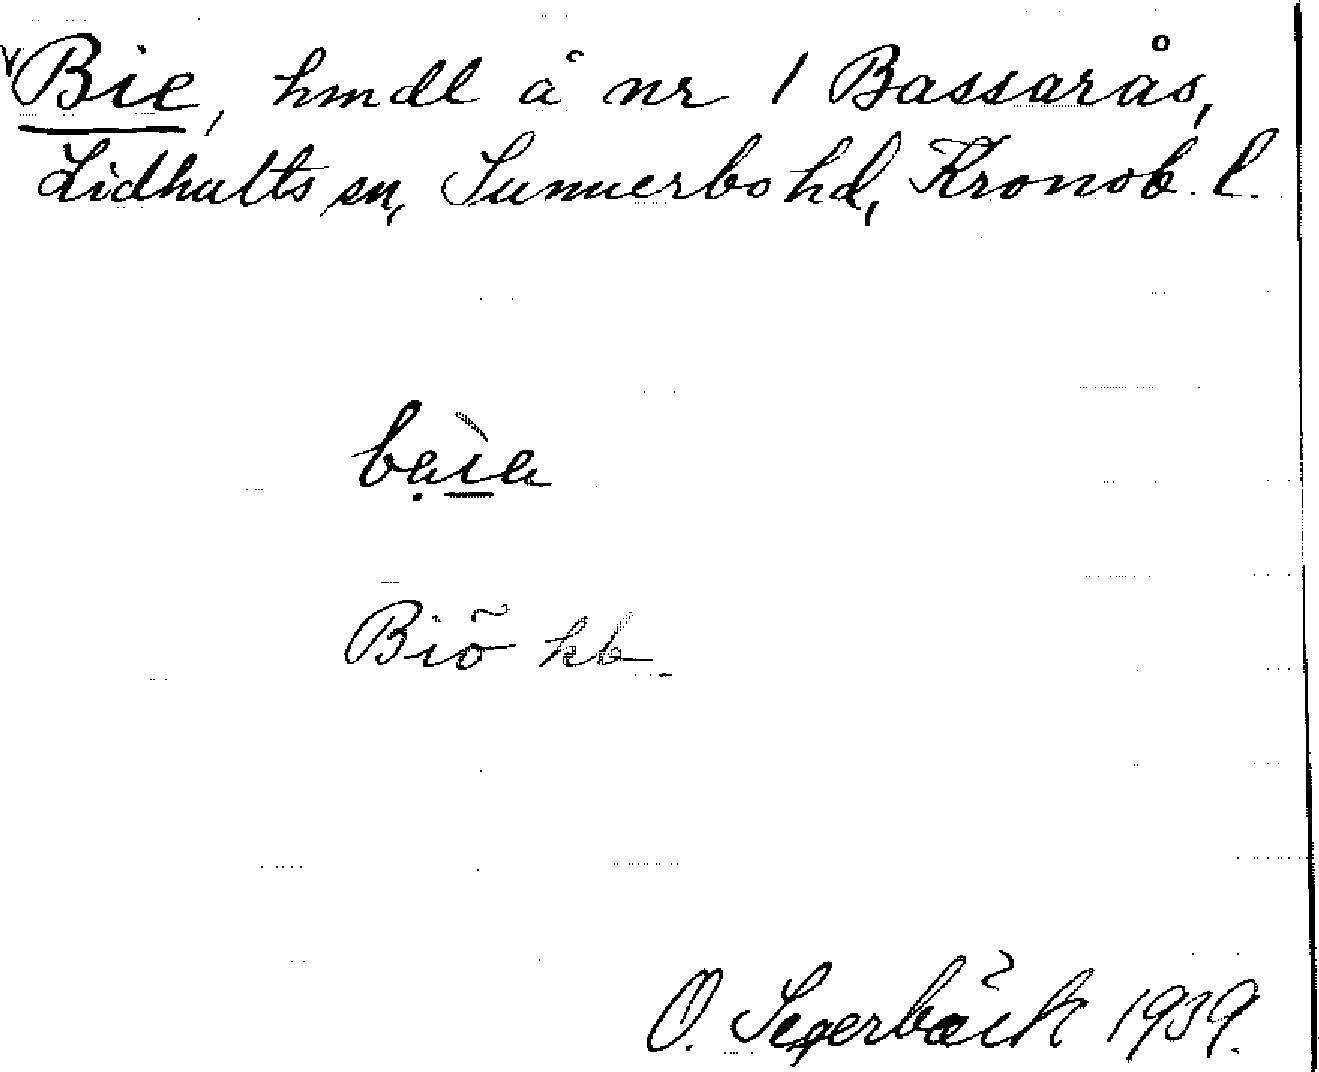 Bie, hmdl å nr 1 Bassarås,
Lidhults sn, Sunnerbo hd, Kronob. l.
Biö kb.
O. Segerbäck 1939.